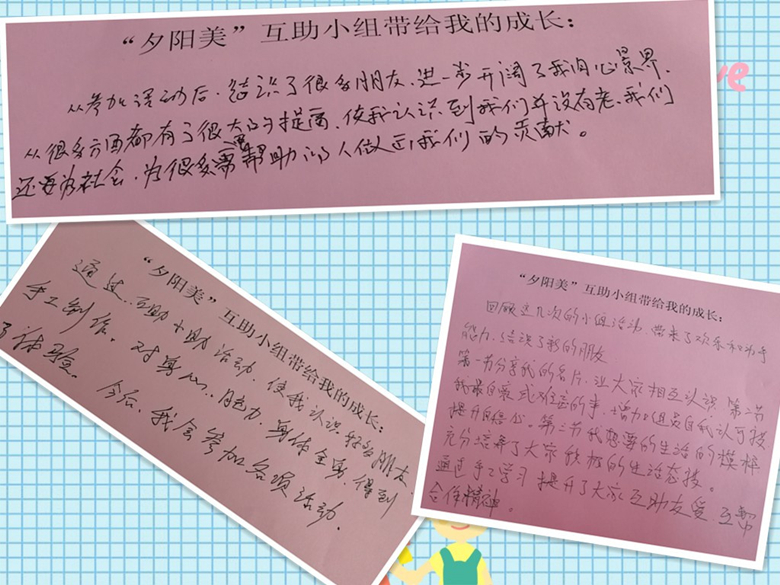 “夕阳美”互助小组带给我的成长：
从参加活动后，结识了很多朋友，进一步开阔了我内心景界，
从很多方面都有了很大的提高，使我认识到我们并没有老，我们
还要为社会，为很多需要帮助的人做出我们的贡献。
“夕阳美”互助小组带给我的成长：
通过，互助小助活动，使我认识好多朋友，
手工制作。对身心、脑力，身体全身，得到
了体验。今后，我会参加各项活动。
“夕阳美”互助小组带给我的成长：
回顾这几次的小组活动，带来了欢乐和动手
能力，结识了新的朋友
第一节分享我的名片，让大家相互认识，第二节
我最自豪或难忘的事，增加组员自我认可
提升自信心。第三节我想要的生活的模样
充分培养了大家积极的生活态度。
通过手工学习提升了大家互助友爱 互帮
合作精神。